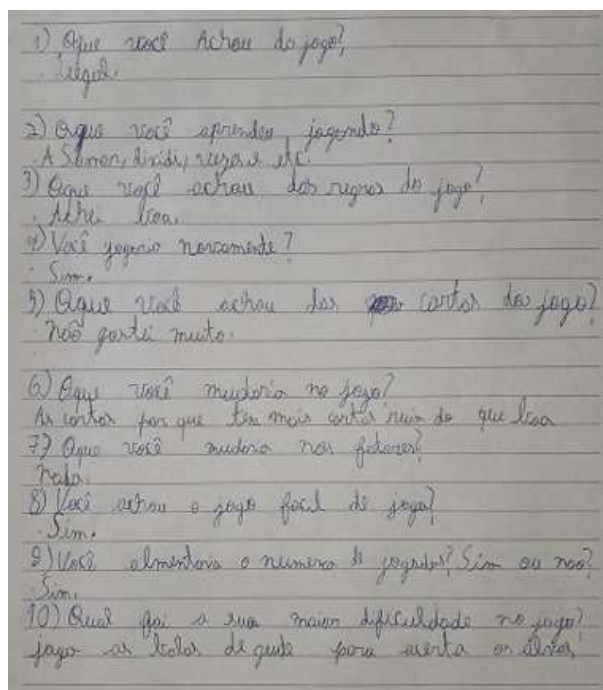 1) Oque você Achou do jogo?
· Legal.
2) Oque você aprendeu jogando?
· A Somar, dividi, e etc.
3) Oque você achou das regras do jogo?
· Achei boa.
4) Você jogaria novamente?
· Sim.
5) Oque você achou das cartas do jogo?
· não gostei muito.
6) Oque você mudaria no jogo?
As cartas por que tem mais carta ruim do que boa
7) Oque você mudaria nos
nada.
8) Você achou o jogo facil de joga?
· Sim.
9) Você almentaria o numero de jogadas? Sim ou não?
· Sim.
10) Qual foi a sua maior dificuldade no jogo?
joga as bolas de gude para acerta os alvos,